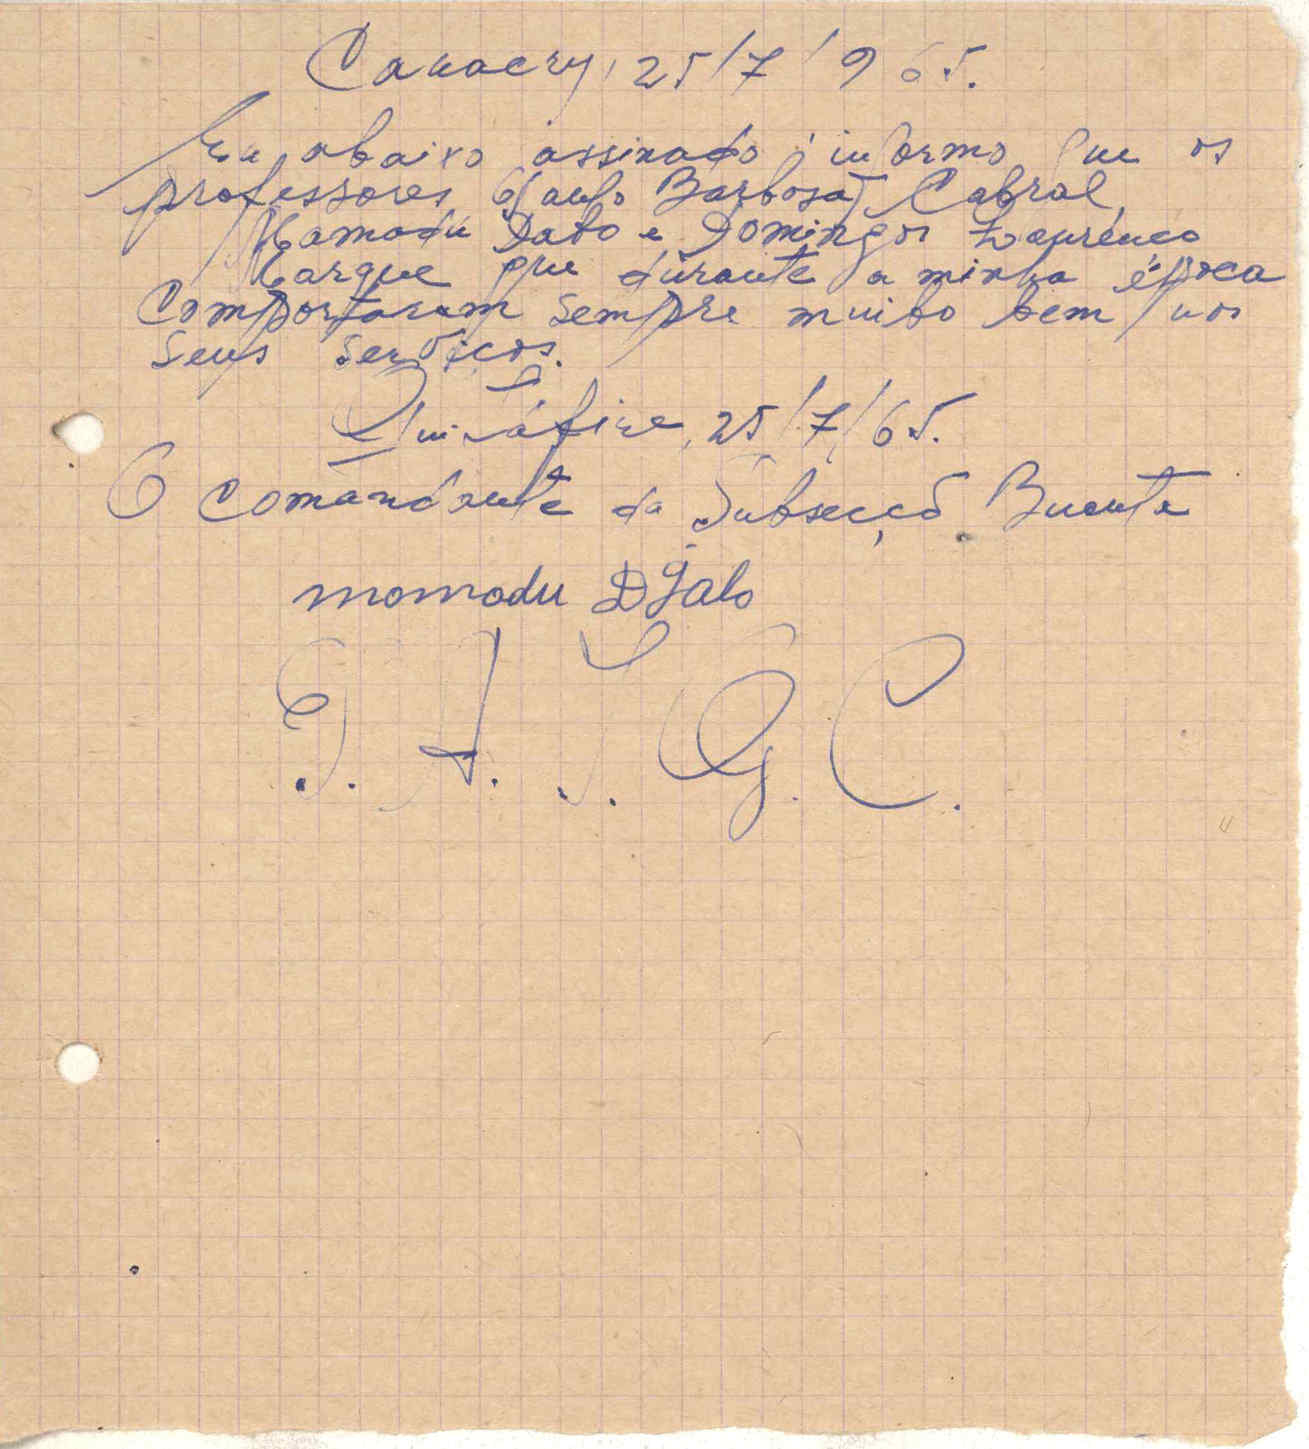 Canacry, 25/7/965.
Eu, abaixo assinado, informo que os
professores, Paulo Barbosa Cabral,
Mamadú Dabo e Domingos Lourenco
Marque que durante a minha época
Comportaram sempre muibo bem nos
seus serviços.
Quitáfine, 25/7/65.
O comandante da Subsecção Buente
momodu Djalo
P. A. I. G. C.